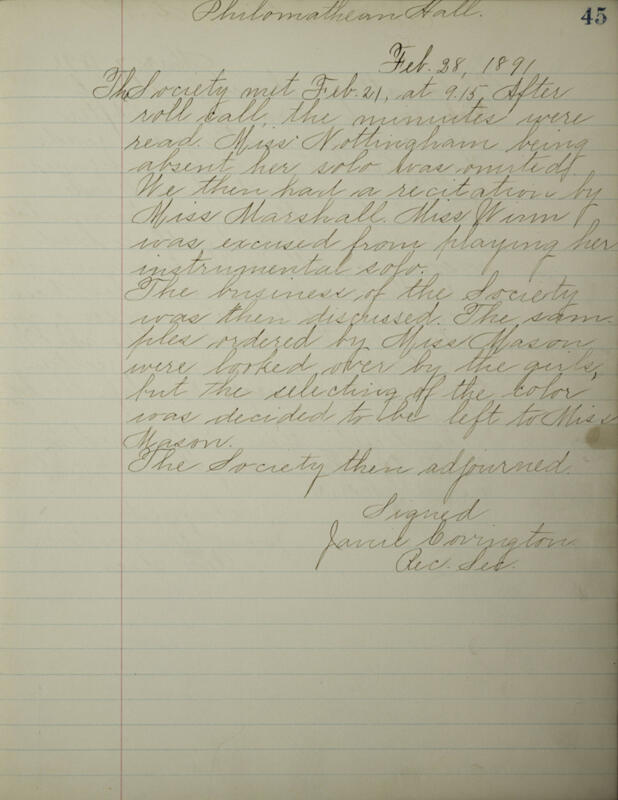 Philomathean Hall.
45
Feb. 28, 1891
The Society met Feb. 21, at 9.15. After
roll call, the minutes were
read. Miss Nottingham being
absent her solo was omitted.
We then had a recitation by
Miss Marshall. Miss Winn
was excused from playing her
instrumental solo.
The business of the Society
was then discussed. The sam-
ples ordered by Miss Mason
were looked over by the girls,
but the selecting of the color
was decided to be left to Miss
Mason.
The Society then adjourned.
Signed
Janie Covington
Rec. Sec.